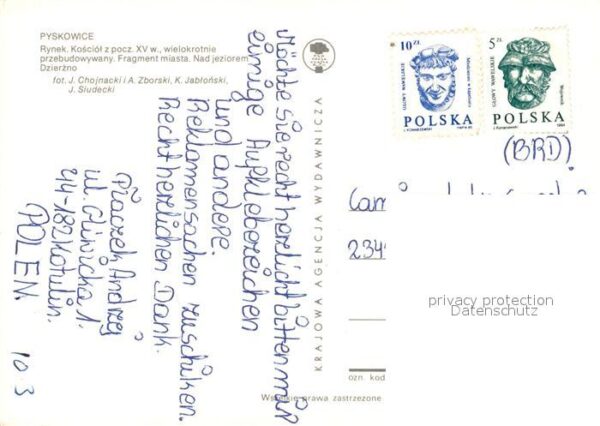 PYSKOWICE
Rynek. Kościół z pocz. XV w., wielokrotnie
przebudowywany. Fragment miasta. Nad jeziorem
Dzierżno
fot. J. Chojnacki i A. Zborski, K. Jabłoński,
J. Siudecki
KRAJOWA AGENCJA WYDAWNICZA
10 ZŁ
GŁOWY WAWELSKIE
POLSKA
5 ZŁ
GŁOWY WAWELSKIE
POLSKA
(BRD)
Cam
234
Möchte sie recht herzlicht bitten mir
einige Aufklebezeichen
und andere
Reklamensachen zuschiken.
Recht herlichen Dank.
Płaczek Andrzej
ul. Gliwicka 1.
44-182 Kotulin.
(POLEN.
10 3
ozn. kod
prawa zastrzeżone
privacy protection
Datenschutz